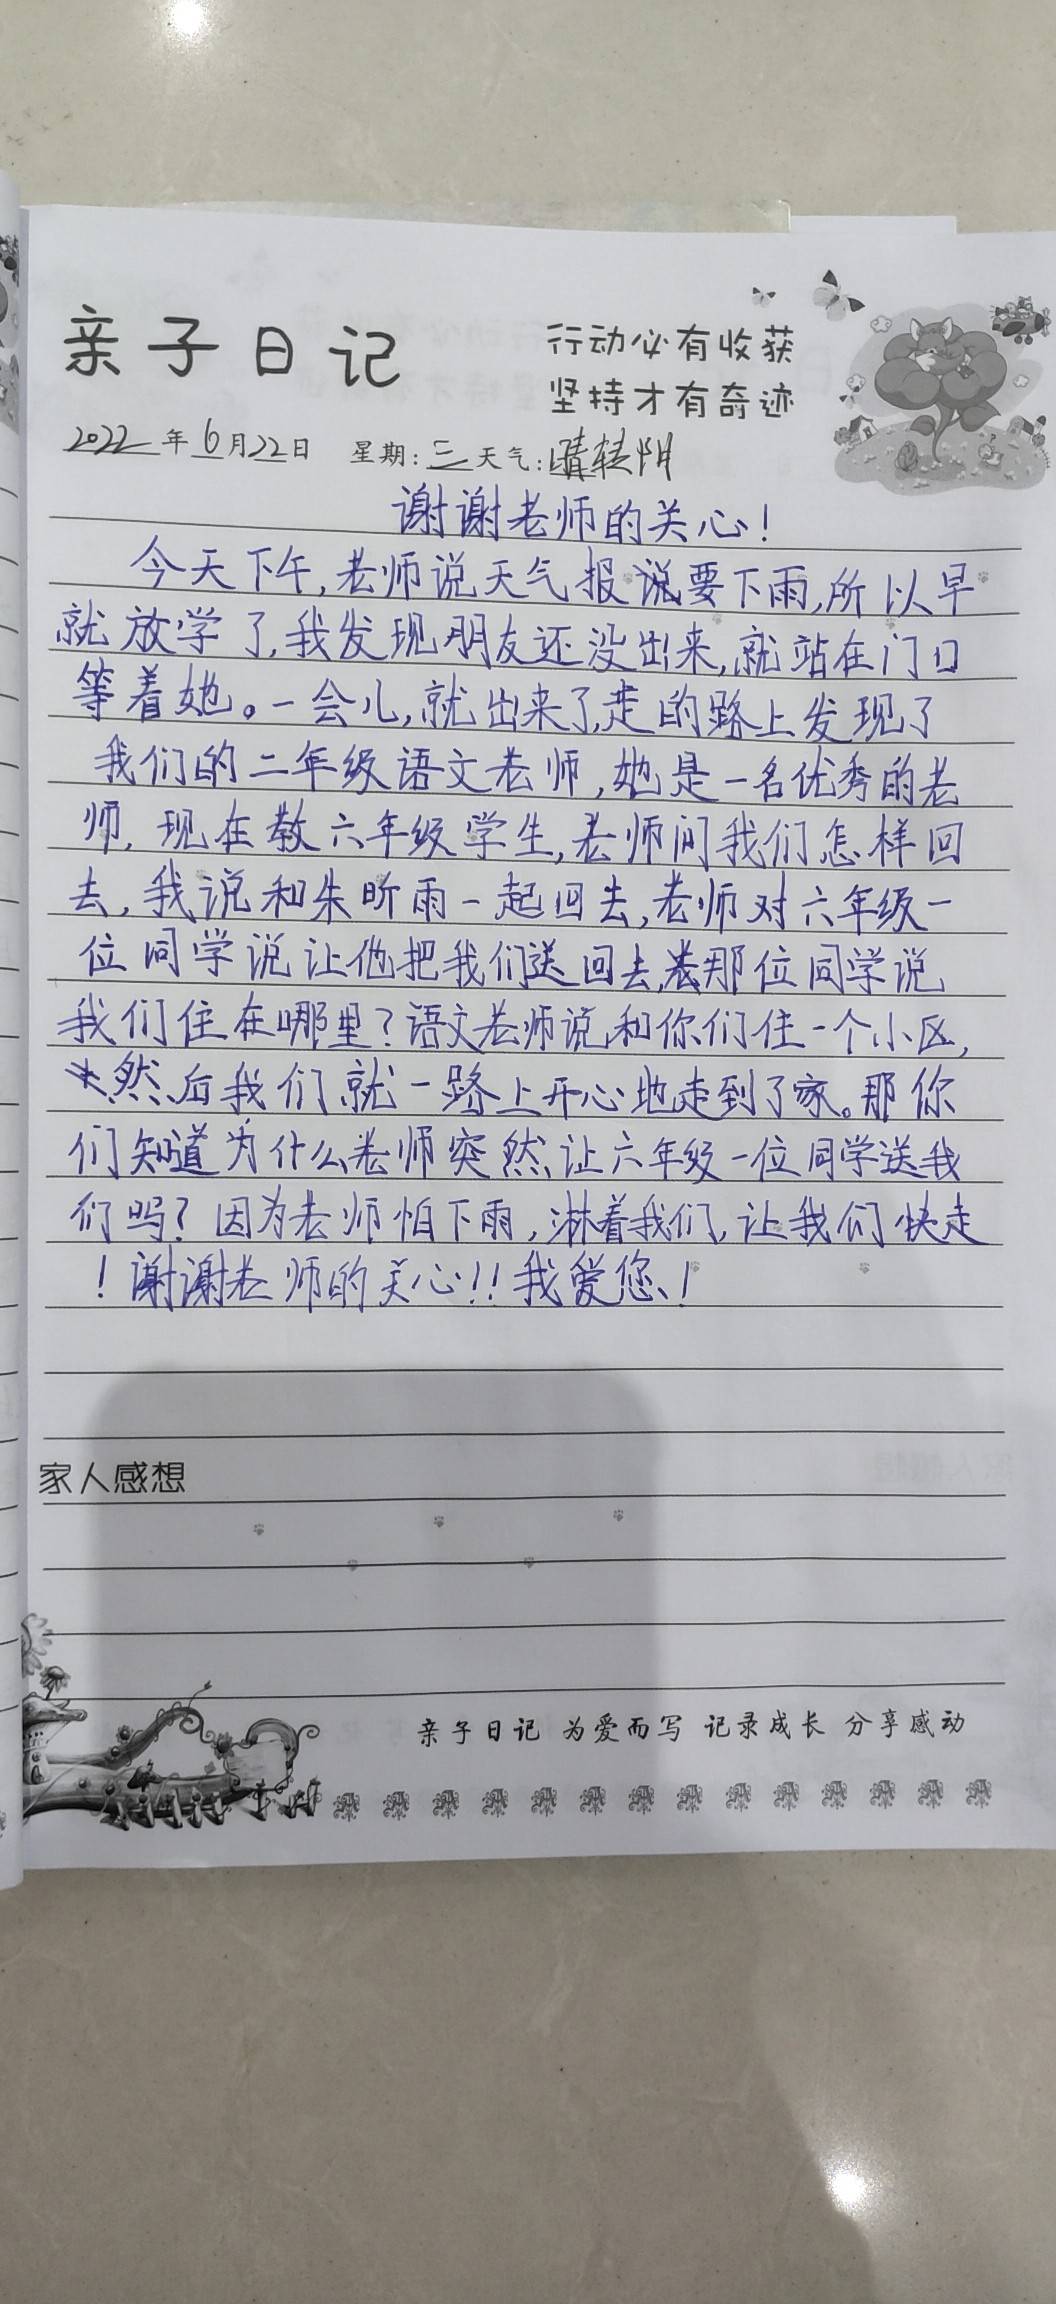 亲子日记
行动必有收获
坚持才有奇迹
2022年6月22日 星期:三天气:晴转阴
谢谢老师的关心!
今天下午,老师说天气报说要下雨,所以早
就放学了,我发现朋友还没出来,就站在门口
等着她。一会儿,就出来了,走的路上发现了
我们的二年级语文老师,她是一名优秀的老
师,现在教六年级学生,老师问我们怎样回
去,我说和朱昕雨一起回去,老师对六年级一
位同学说让他把我们送回去,那位同学说
我们住在哪里?语文老师说和你们住一个小区,
然后我们就一路上开心地走到了家。那你
们知道为什么老师突然让六年级一位同学送我
们吗?因为老师怕下雨,淋着我们,让我们快走
!谢谢老师的关心!!我爱您!
家人感想
亲子日记 为爱而写 记录成长 分享感动